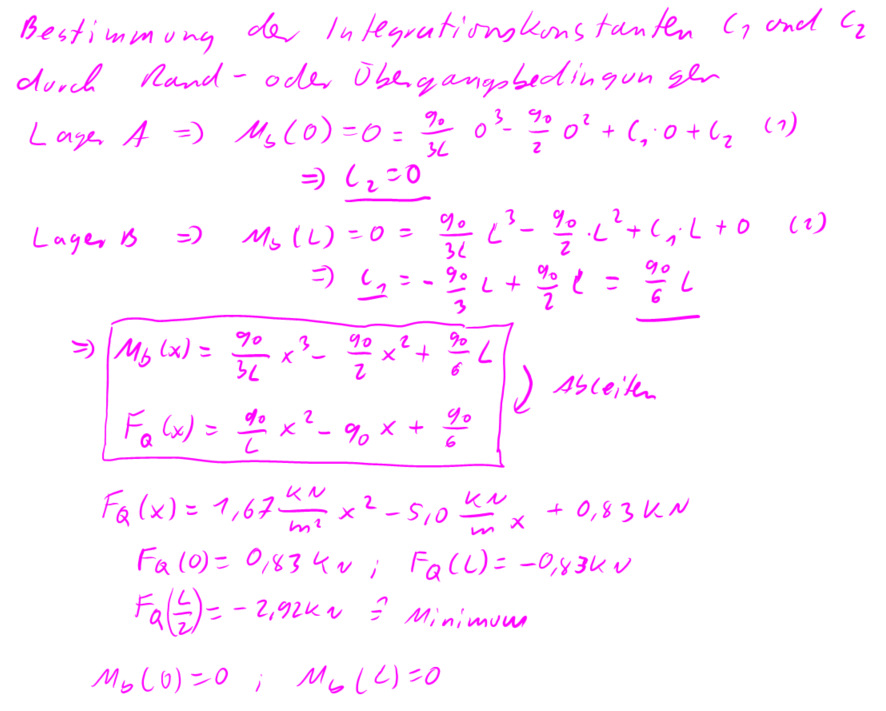 Bestimmung der Integrationskonstanten C₁ und C₂
durch Rand- oder Übergangsbedingungen
Lager A => M_b(0) = 0 = q₀/3L 0³ - q₀/2 0² + C₁·0 + C₂ (1)
=> C₂ = 0
Lager B => M_b(L) = 0 = q₀/3L L³ - q₀/2 · L² + C₁·L + 0 (2)
=> C₁ = - q₀/3 L + q₀/2 L = q₀/6 L
=> M_b(x) = q₀/3L x³ - q₀/2 x² + q₀/6 L
Ableiten
F_Q(x) = q₀/L x² - q₀ x + q₀/6
F_Q(x) = 1,67 kN/m² x² - 5,0 kN/m x + 0,83 kN
F_Q(0) = 0,83 kN ; F_Q(L) = -0,83 kN
F_Q(L/2) = -2,92 kN ≙ Minimum
M_b(0) = 0 ; M_b(L) = 0